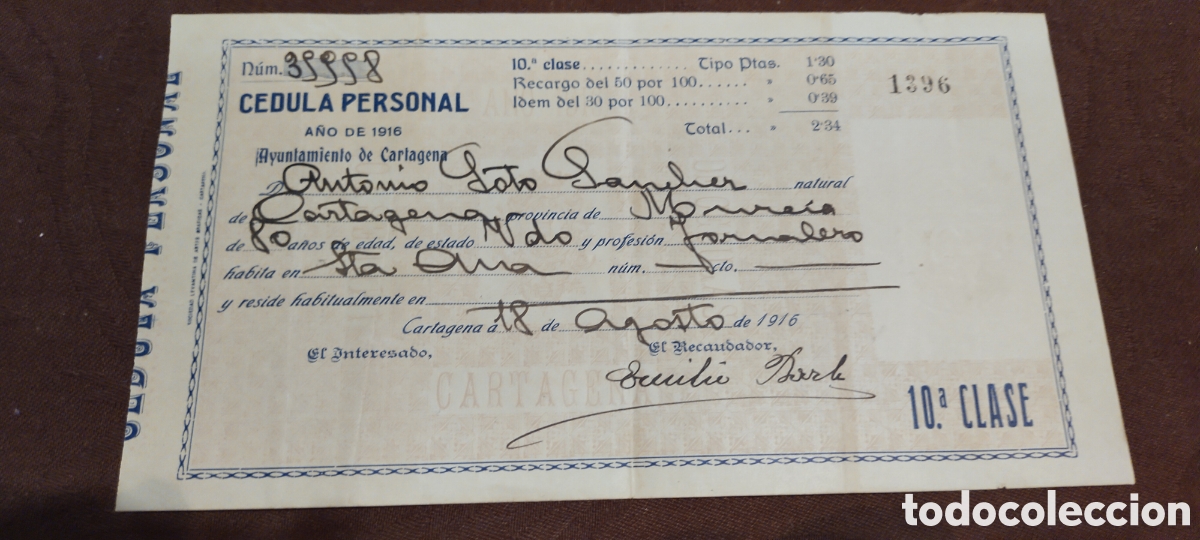 Núm. 39998
10.ª clase ............. Tipo Ptas. 1'30
Recargo del 50 por 100...... » 0'65
Idem del 30 por 100.......... » 0'39
Total... » 2'34
1396
CEDULA PERSONAL
AÑO DE 1916
Ayuntamiento de Cartagena
D. Antonio Soto Sanchez natural
de Cartagena provincia de Murcia
de años de edad, de estado Vdo y profesión Jornalero
habita en Sta Ana núm. cto.
y reside habitualmente en
Cartagena a 18 de Agosto de 1916
El Interesado,
El Recaudador,
Emilio
CARTAGENA
10.ª CLASE
CEDULA PERSONAL
todocoleccion